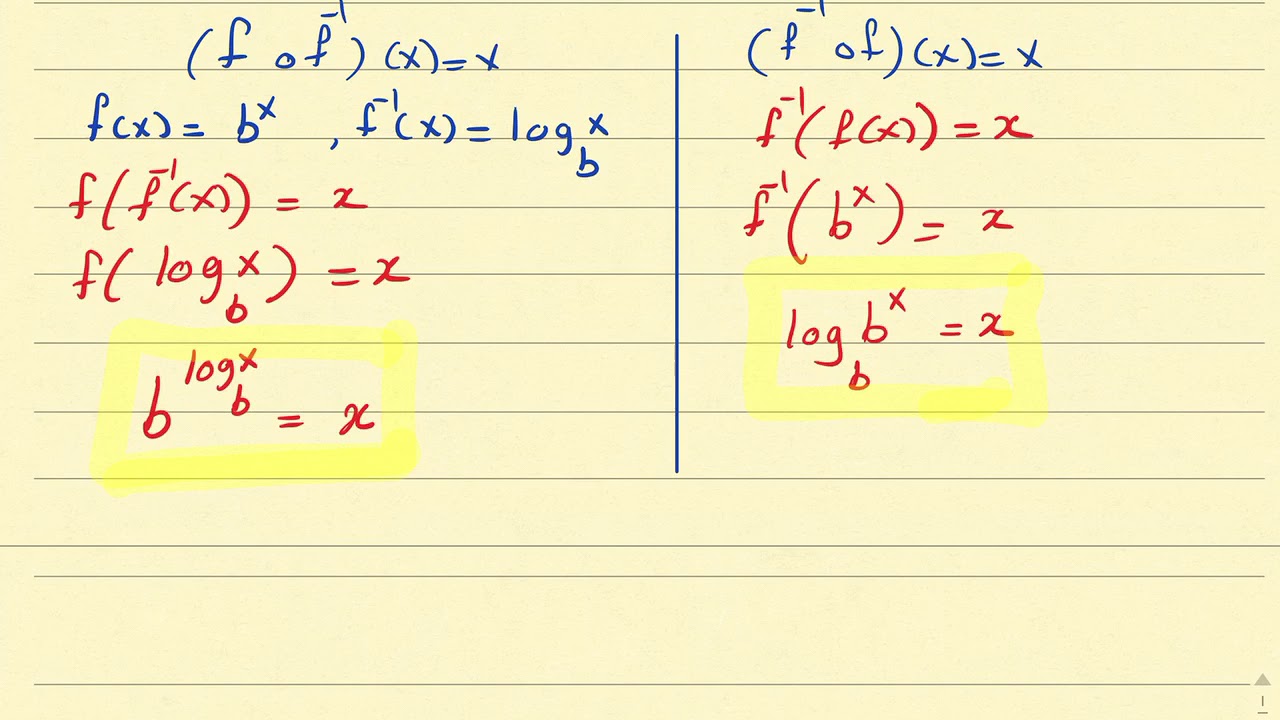 (f o f⁻¹)(x) = x
f(x) = bˣ , f⁻¹(x) = log_b x
f(f⁻¹(x)) = x
f(log_b x) = x
b^(log_b x) = x
(f⁻¹ o f)(x) = x
f⁻¹(f(x)) = x
f⁻¹(bˣ) = x
log_b bˣ = x
1